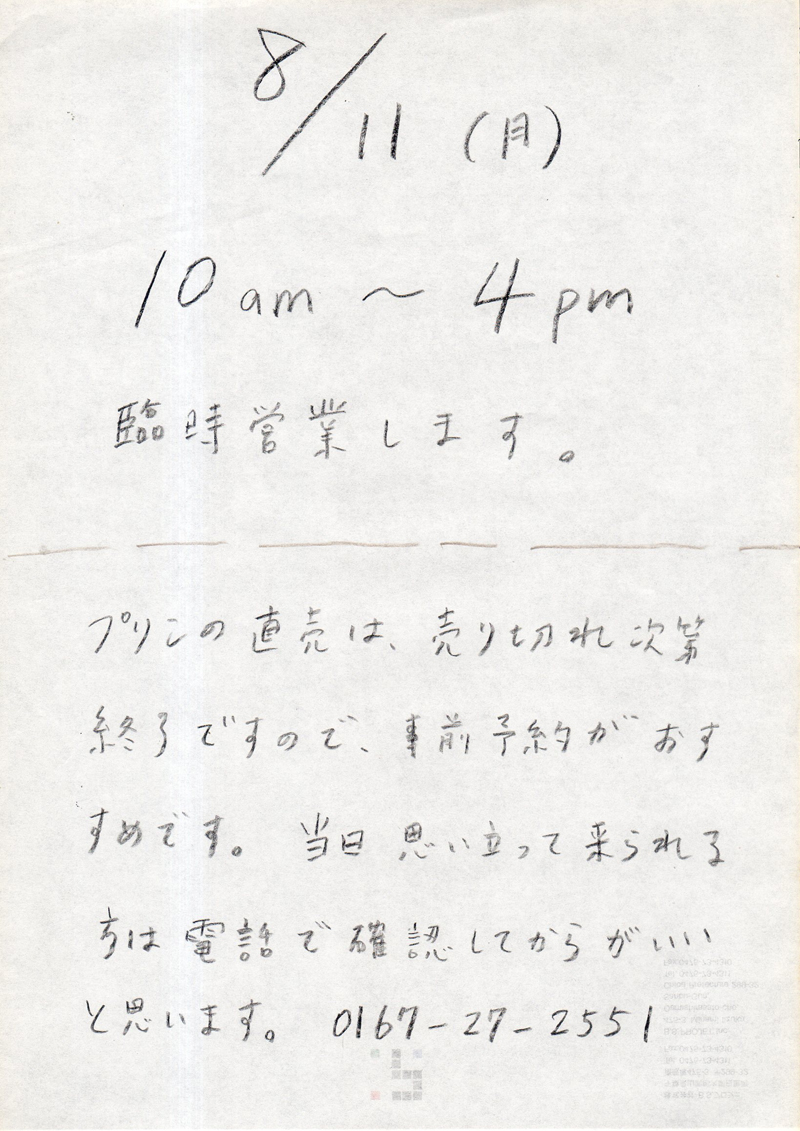 8/11 (月)
10am 〜 4pm
臨時営業します。
プリンの直売は、売り切れ次第
終了ですので、事前予約がおす
すめです。 当日思い立って来られる
方は電話で確認してからがいい
と思います。 0167-27-2551